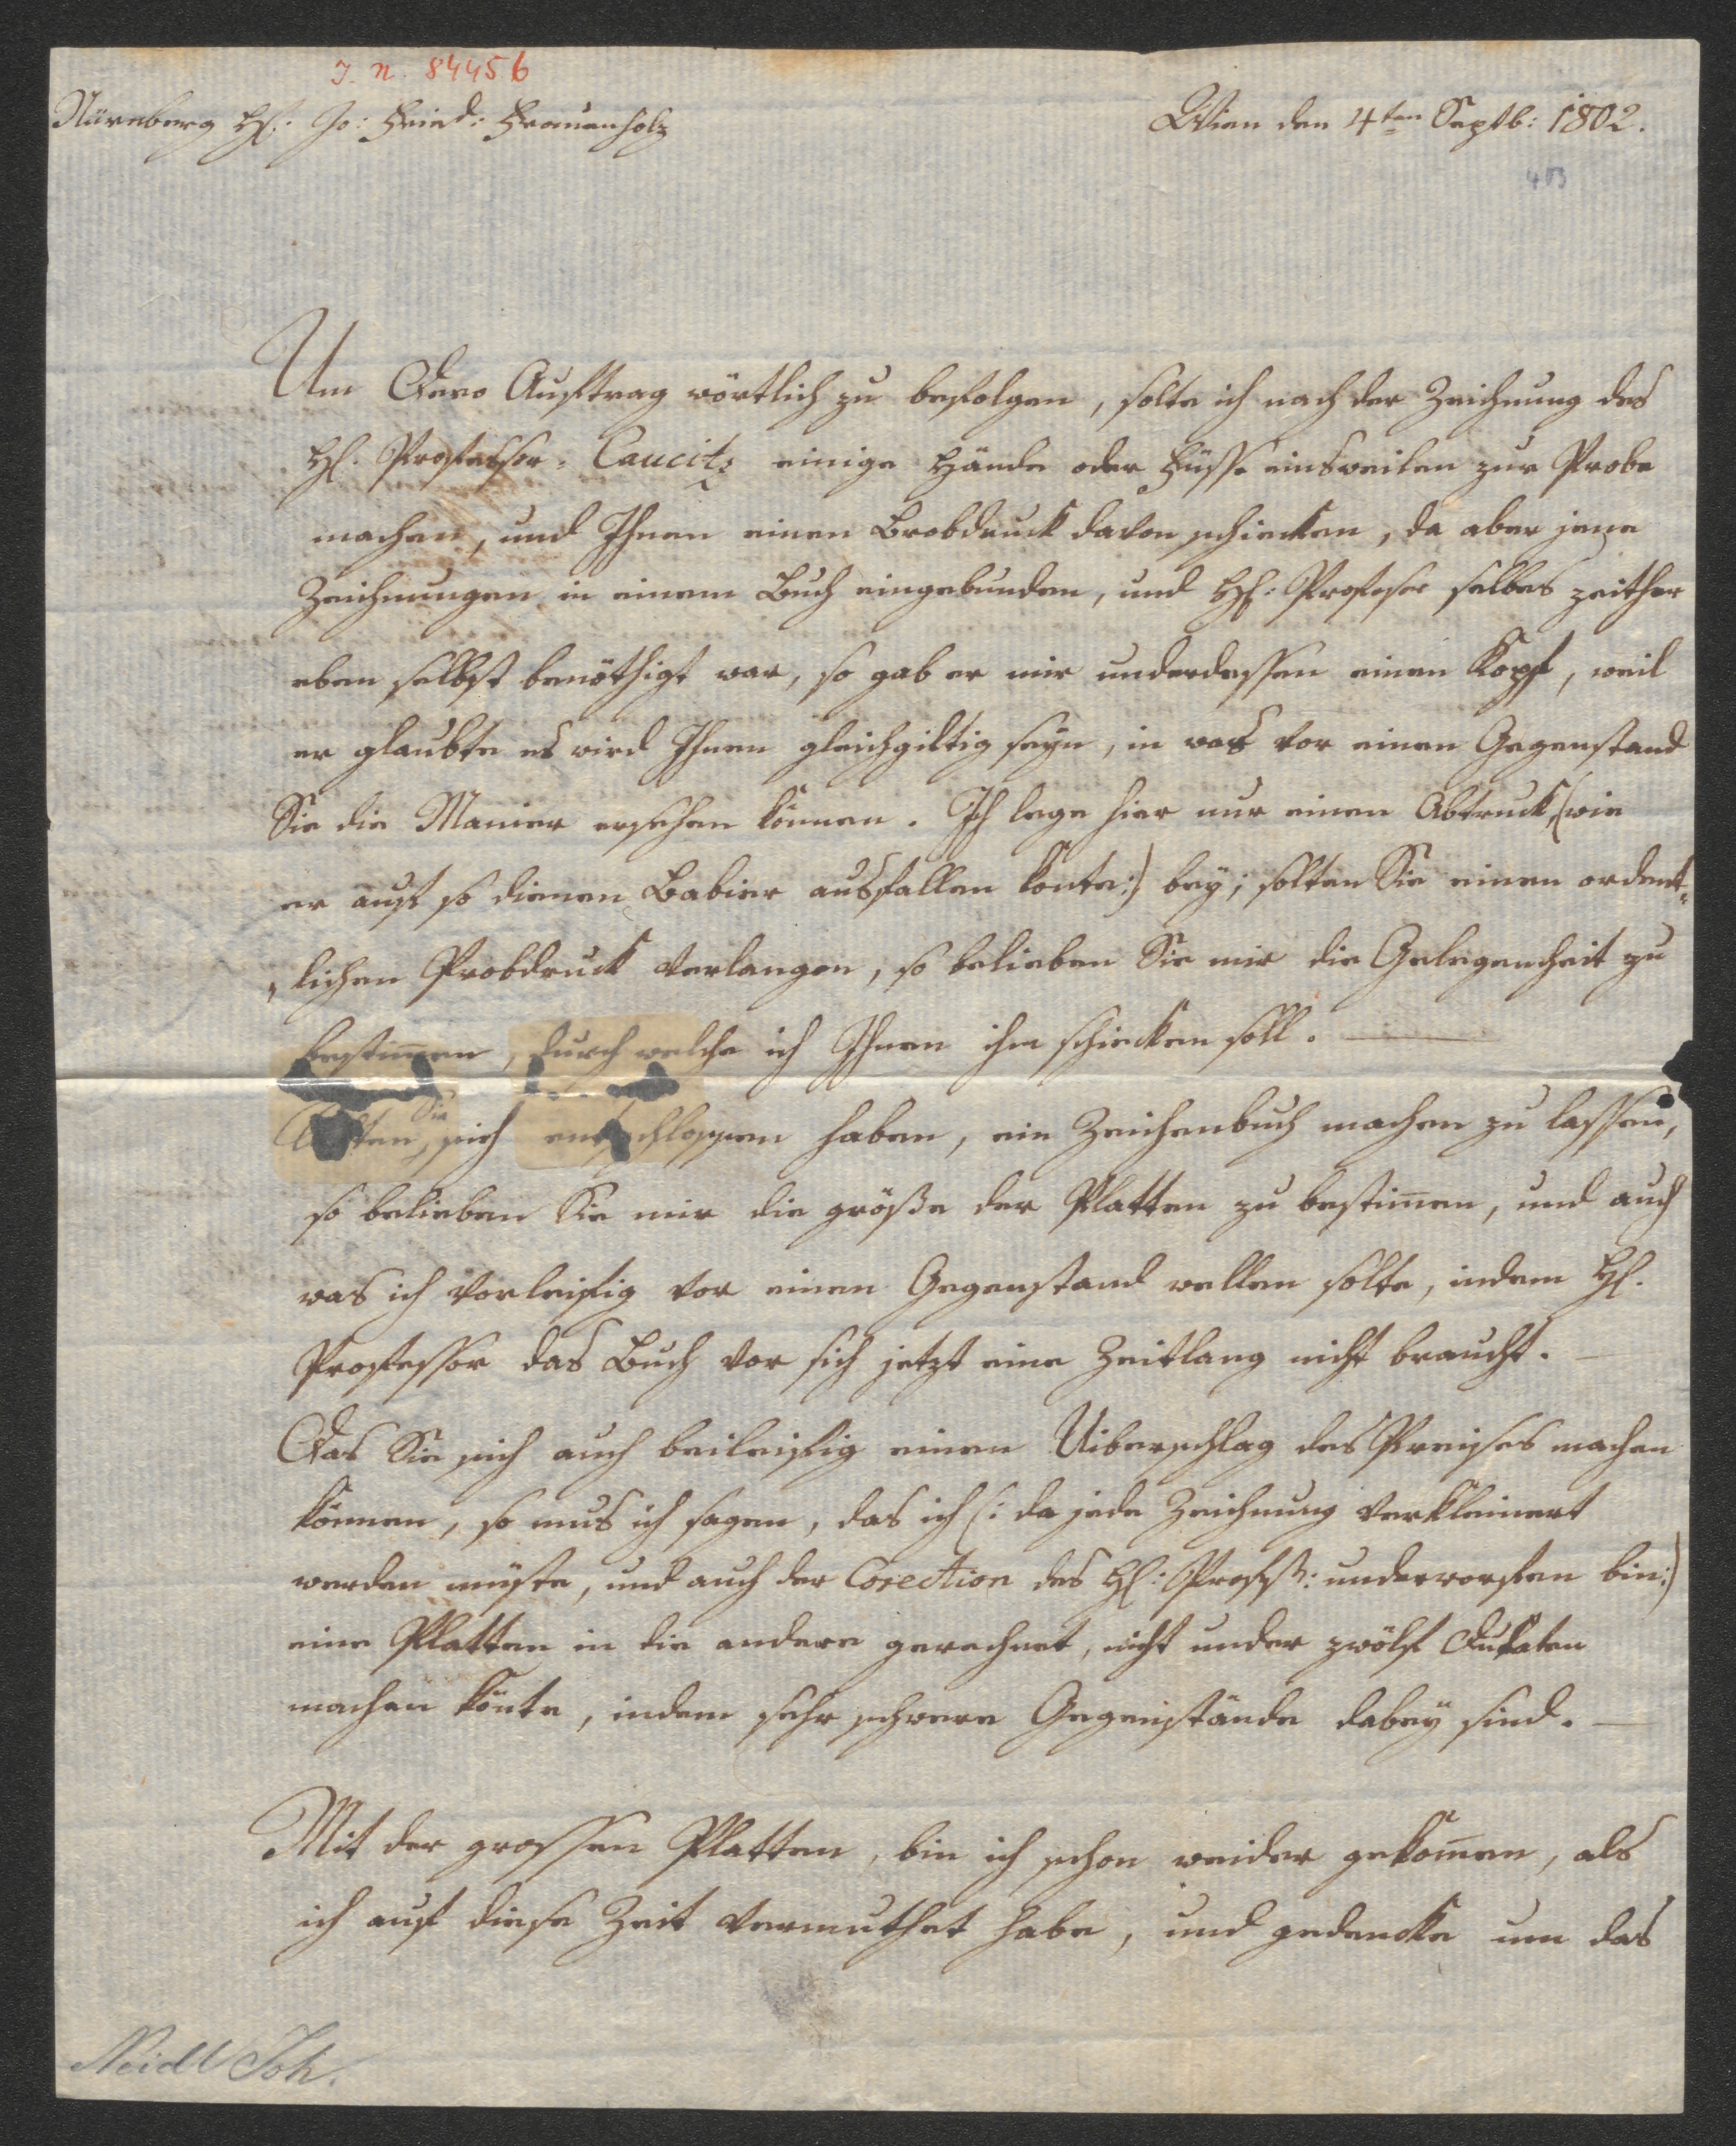 J. N. 84456
Nürnberg H: Jo: Fried: Frauenholz
Wien den 4ten Septb: 1802.
Um Dero Auftrag wörtlich zu befolgen, solte ich nach der Zeichnung des
H. Professor. Caucitz einige Hände oder Füsse einsweilen zur Probe
machen, und Ihnen einen Brobdruck davon schicken, da aber jene
Zeichnungen in einem Buch eingebunden, und H: Profesor selbes zeither
eben selbst benöthigt war, so gab er mir underdessen einen Kopf, weil
er glaubte es wird Ihnen gleichgiltig seyn, in was vor einen Gegenstand
Sie die Manier ersehen können. Ich lege hier nur einen Abtruck, (wie
er auf so dienen Babier ausfallen konte:) bey; solten Sie einen ordent„
„lichen Probdruck verlangen, so belieben Sie mir die Gelegenheit zu
bestim̄en, durch welche ich Ihnen ihn schicken soll. —
Sie
sich entschlossen haben, ein Zeichenbuch machen zu lassen,
so belieben Sie mir die größe der Platten zu bestim̄en, und auch
was ich vorleifig vor einen Gegenstand wellen solte, indem H.
Professor das Buch vor sich jetzt eine Zeitlang nicht braucht. —
Das Sie sich auch beileifig einen Uiberschlag des Preises machen
können, so mus ich sagen, das ich (: da jede Zeichnung verkleinert
werden müste, und auch der Corection des H: Profeß: underworfen bin:)
eine Platten in die andere gerechnet, nicht under zwölf Dukaten
machen könte, indem sehr schwere Gegenstände dabey sind. —
Mit der grossen Platten, bin ich schon weider gekom̄en, als
ich auf diese Zeit vermuthet habe, und gedencke um das
Neidl Joh.